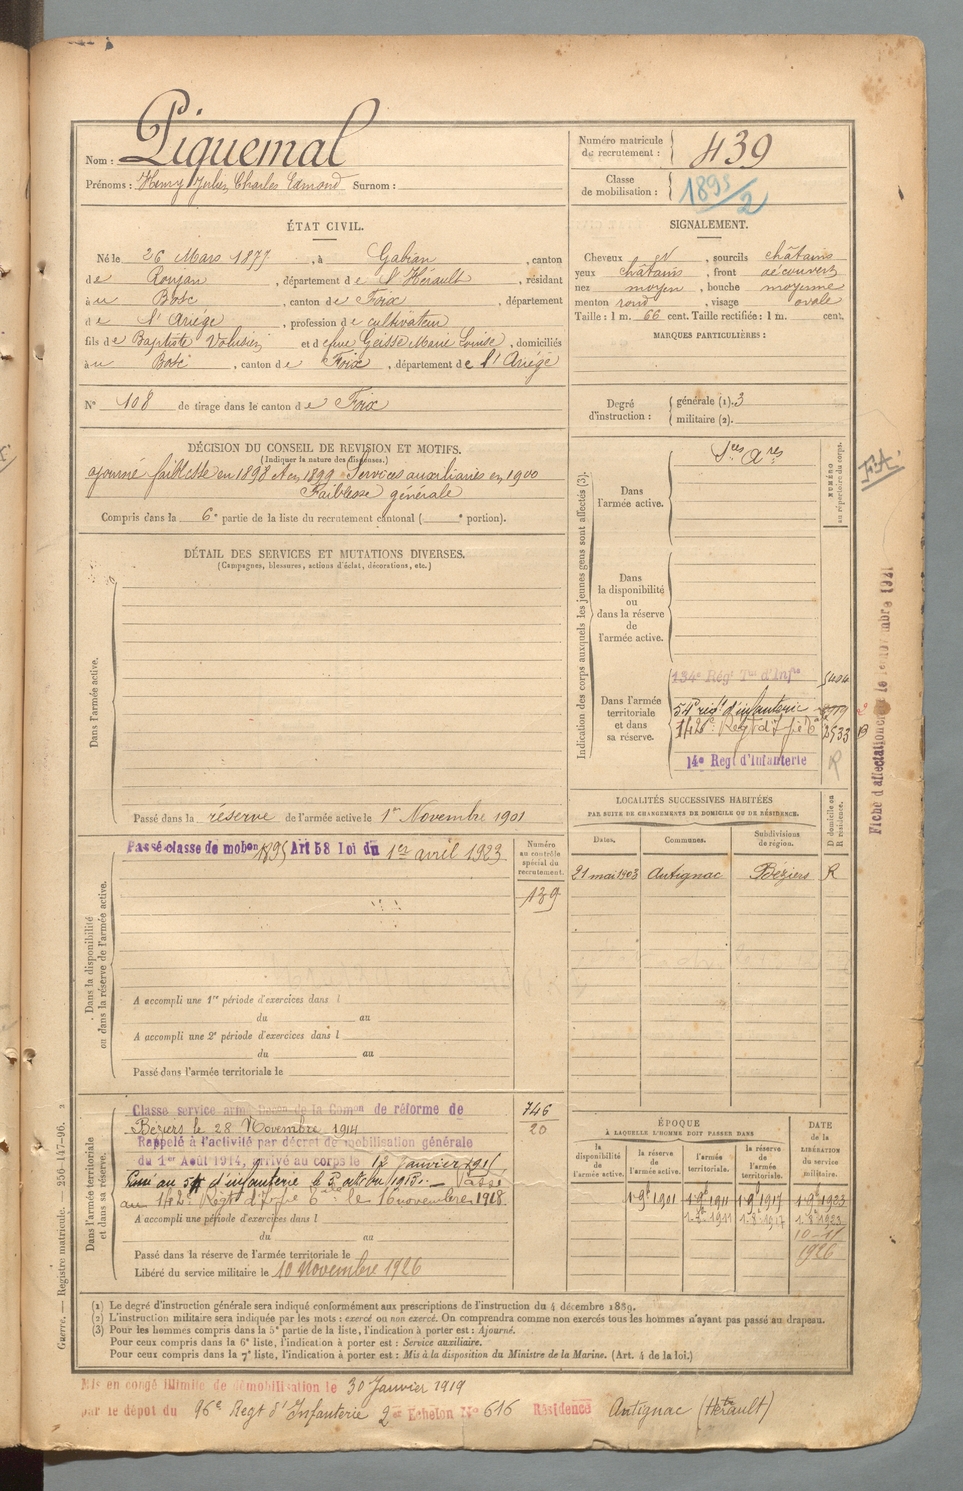 Nom : Piquemal
Prénoms : Henry Jules Charles Edmond Surnom :
Numéro matricule
du recrutement : 439
Classe
de mobilisation : 1895/2
ÉTAT CIVIL.
Né le 26 Mars 1877, à Gabian, canton
de Roujan, département de l'Hérault, résidant
à u Bosc, canton de Foix, département
de l'Ariége, profession de cultivateur
fils de Baptiste Volusien et d efue Geisse Marie Louise, domiciliés
à u Bosc, canton de Foix, département de l'Ariége
N° 108 de tirage dans le canton de Foix
SIGNALEMENT.
Cheveux N, sourcils châtains
yeux châtains, front découvert
nez moyen, bouche moyenne
menton rond, visage ovale
Taille : 1 m. 66 cent. Taille rectifiée : 1 m. cent.
MARQUES PARTICULIÈRES :
Degré
d'instruction :
générale (1). 3
militaire (2).
DÉCISION DU CONSEIL DE REVISION ET MOTIFS.
(Indiquer la nature des dispenses.)
ajourné faiblesse en 1898 et en 1899 Services auxiliaires en 1900
Faiblesse générale
Compris dans la 6e partie de la liste du recrutement cantonal ( e portion).
DÉTAIL DES SERVICES ET MUTATIONS DIVERSES.
(Campagnes, blessures, actions d'éclat, décorations, etc.)
Dans l'armée active.
Passé dans la réserve de l'armée active le 1er Novembre 1901
Indication des corps auxquels les jeunes gens sont affectés (3).
NUMÉRO
au répertoire du corps.
Dans
l'armée active.
Sces Ares
Dans
la disponibilité
ou
dans la réserve
de
l'armée active.
Dans l'armée
territoriale
et dans
sa réserve.
134e Régt Tal d'Infie
54e régt d'infanterie
142e Regt d'Infie 2533 B
14e Regt d'Infanterie R
F.A.
Fiche d'affectation novembre 1921
LOCALITÉS SUCCESSIVES HABITÉES
PAR SUITE DE CHANGEMENTS DE DOMICILE OU DE RÉSIDENCE.
Dates. Communes. Subdivisions
de région.
D domicile ou
R résidence.
21 mai 1903 Autignac Béziers R
Dans la disponibilité
ou dans la réserve de l'armée active.
Passé classe de mobon 1895 Art 58 loi du 1er avril 1923
Numéro
au contrôle
spécial du
recrutement.
139
A accompli une 1re période d'exercices dans l
du au
A accompli une 2e période d'exercices dans l
du au
Passé dans l'armée territoriale le
Dans l'armée territoriale
et dans sa réserve.
Classé service armé de la Comon de réforme de
Béziers le 28 Novembre 1914
Rappelé à l'activité par décret de mobilisation générale
du 1er Août 1914, arrivé au corps le 12 janvier 1915
au 54 d'infanterie le 5 octobre 1915. Passé
au 142e Régt d'Infie le 16 novembre 1918.
746
20
A accompli une période d'exercices dans l
du au
Passé dans la réserve de l'armée territoriale le
Libéré du service militaire le 10 Novembre 1926
ÉPOQUE
À LAQUELLE L'HOMME DOIT PASSER DANS
la
disponibilité
de l'armée active.
la réserve
de
l'armée active.
l'armée
territoriale.
la réserve
de l'armée
territoriale.
DATE
de la
LIBÉRATION
du service
militaire.
1-9bre 1901 1-9bre 1911 1-9bre 1917 1-9bre 1923
1-8-1917 1-8-1923
10-11
1926
(1) Le degré d'instruction générale sera indiqué conformément aux prescriptions de l'instruction du 4 décembre 1889.
(2) L'instruction militaire sera indiquée par les mots : exercé ou non exercé. On comprendra comme non exercés tous les hommes n'ayant pas passé au drapeau.
(3) Pour les hommes compris dans la 5e partie de la liste, l'indication à porter est : Ajourné.
Pour ceux compris dans la 6e liste, l'indication à porter est : Service auxiliaire.
Pour ceux compris dans la 7e liste, l'indication à porter est : Mis à la disposition du Ministre de la Marine. (Art. 4 de la loi.)
Guerre. — Registre matricule. — 256-147-96. 2
Mis en congé illimité de démobilisation le 30 Janvier 1919
par le dépot du 96e Regt d'Infanterie 2er Echelon No 616 Résidence Autignac (Hérault)